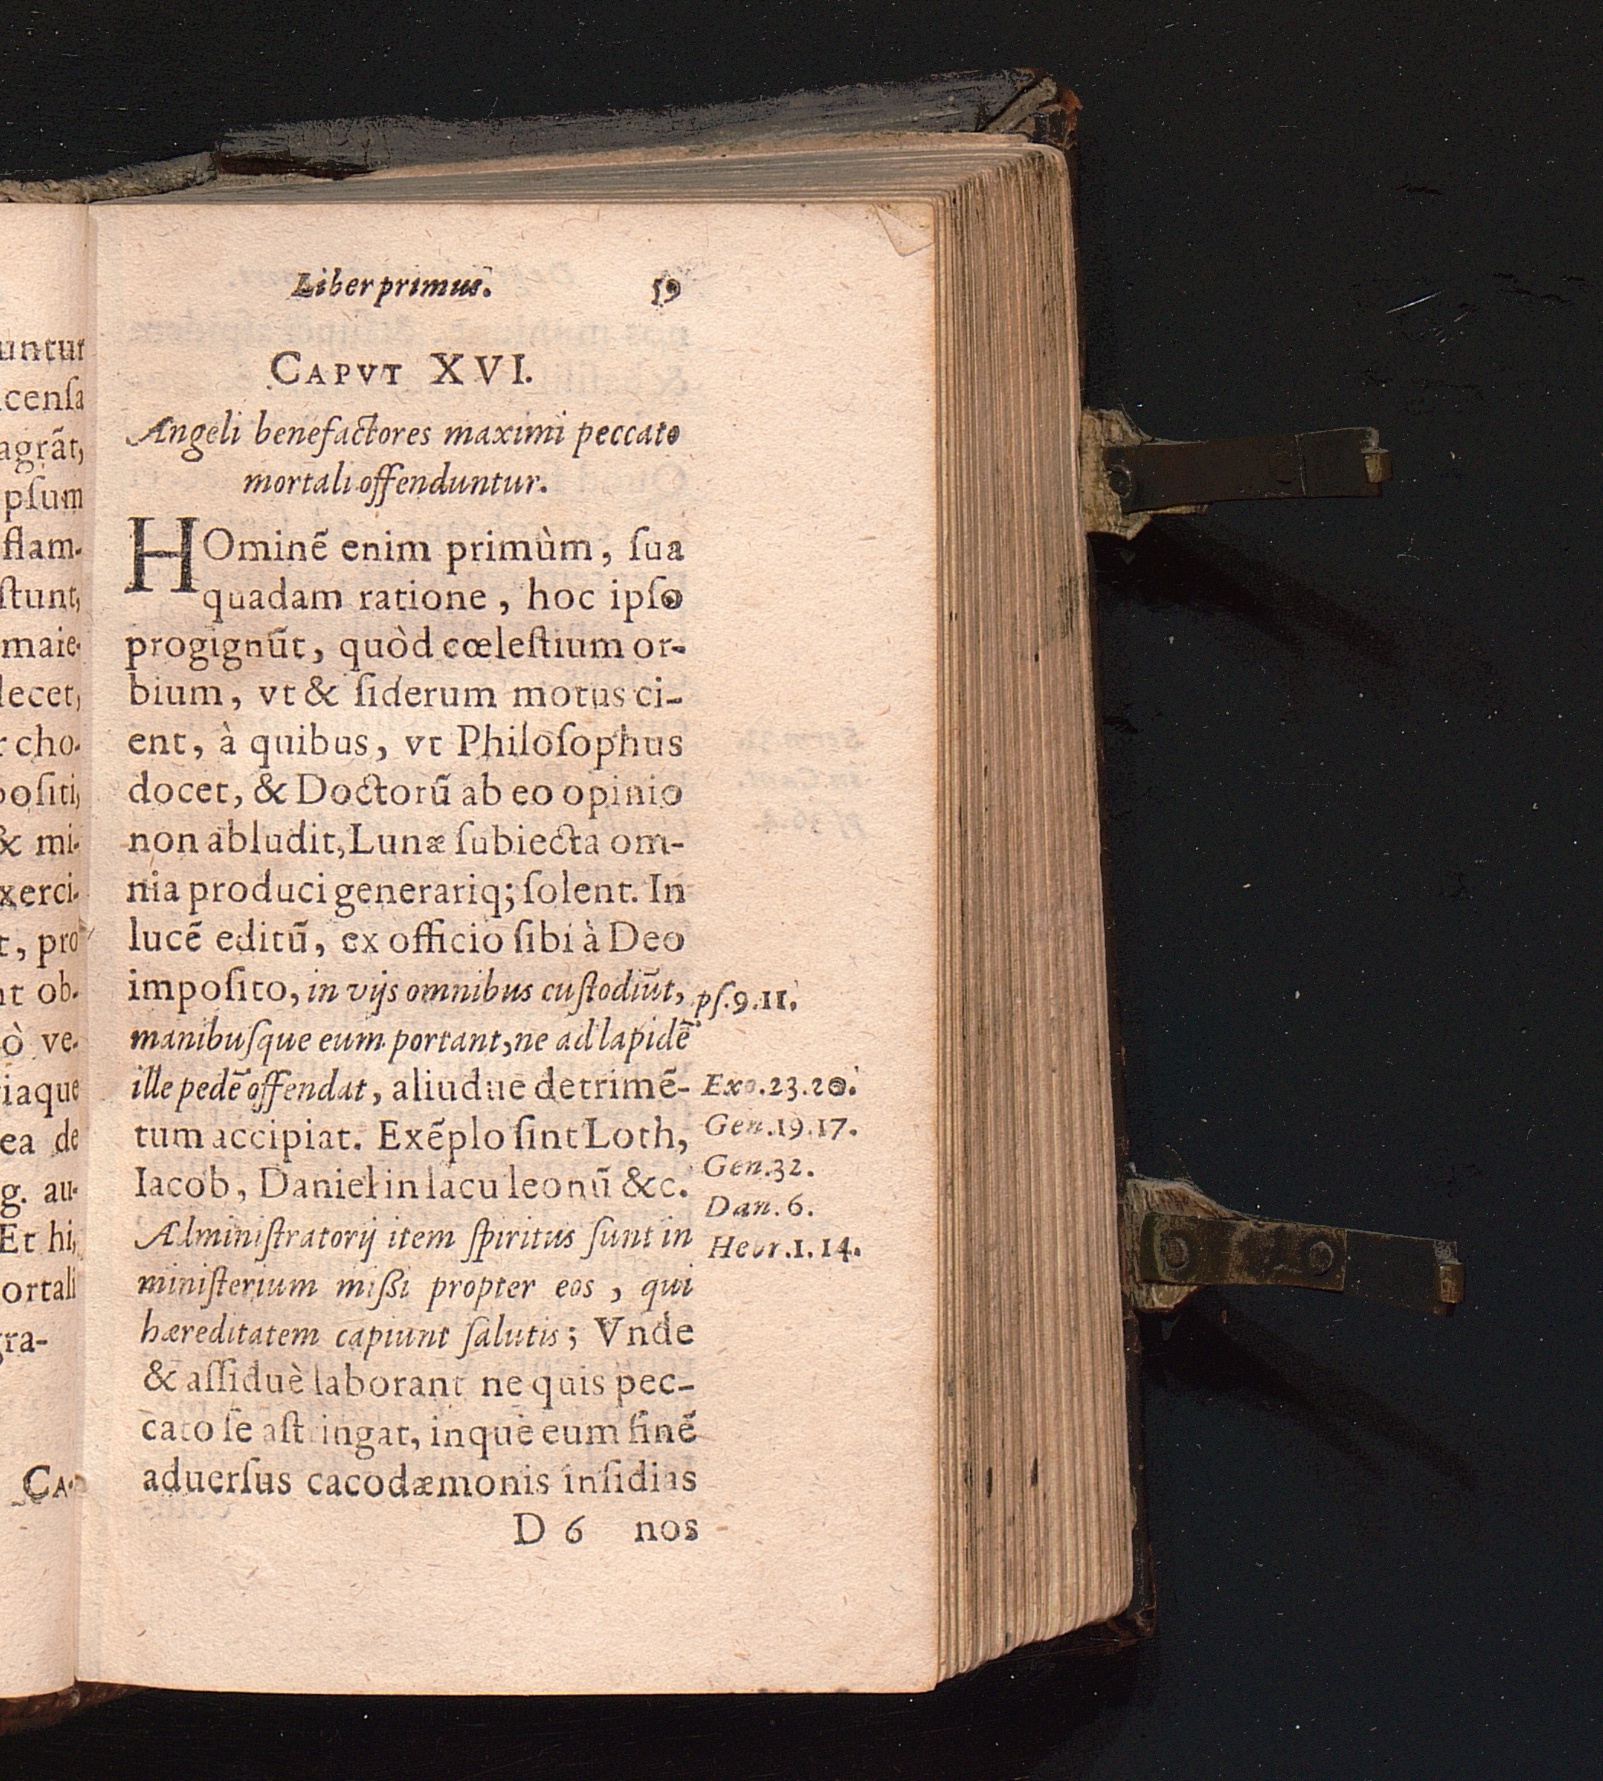 untur
cenſa
agrãt,
pſum
flam-
ſtunt,
maie-
decet,
cho-
poſiti,
& mi-
xerci-
t, pro
nt ob-
ò ve-
iaque
ea de
g. au-
Et hi,
ortali
gra-
CA-
Liber primus. 59
CAPVT XVI.
Angeli benefactores maximi peccato
mortali offenduntur.
HOminẽ enim primùm, ſua
quadam ratione, hoc ipſo
progignũt, quòd cœleſtium or-
bium, vt & ſiderum motus ci-
ent, à quibus, vt Philoſophus
docet, & Doctorũ ab eo opinio
non abludit, Lunæ ſubiecta om-
nia produci generariq; ſolent. In
lucẽ editũ, ex officio ſibi à Deo
impoſito, in vijs omnibus cuſtodiũt,
manibuſque eum portant, ne ad lapidẽ
ille pedẽ offendat, aliudue detrimẽ-
tum accipiat. Exẽplo ſint Loth,
Iacob, Daniel in lacu leonũ &c.
Adminiſtratorij item ſpiritus ſunt in
miniſterium miſſi propter eos, qui
hæreditatem capiunt ſalutis; Vnde
& aſſiduè laborant ne quis pec-
cato ſe aſtringat, inque eum finẽ
aduerſus cacodæmonis inſidias
D 6 nos
pſ.9.11.
Exo.23.20.
Gen.19.17.
Gen.32.
Dan.6.
Hebr.1.14.